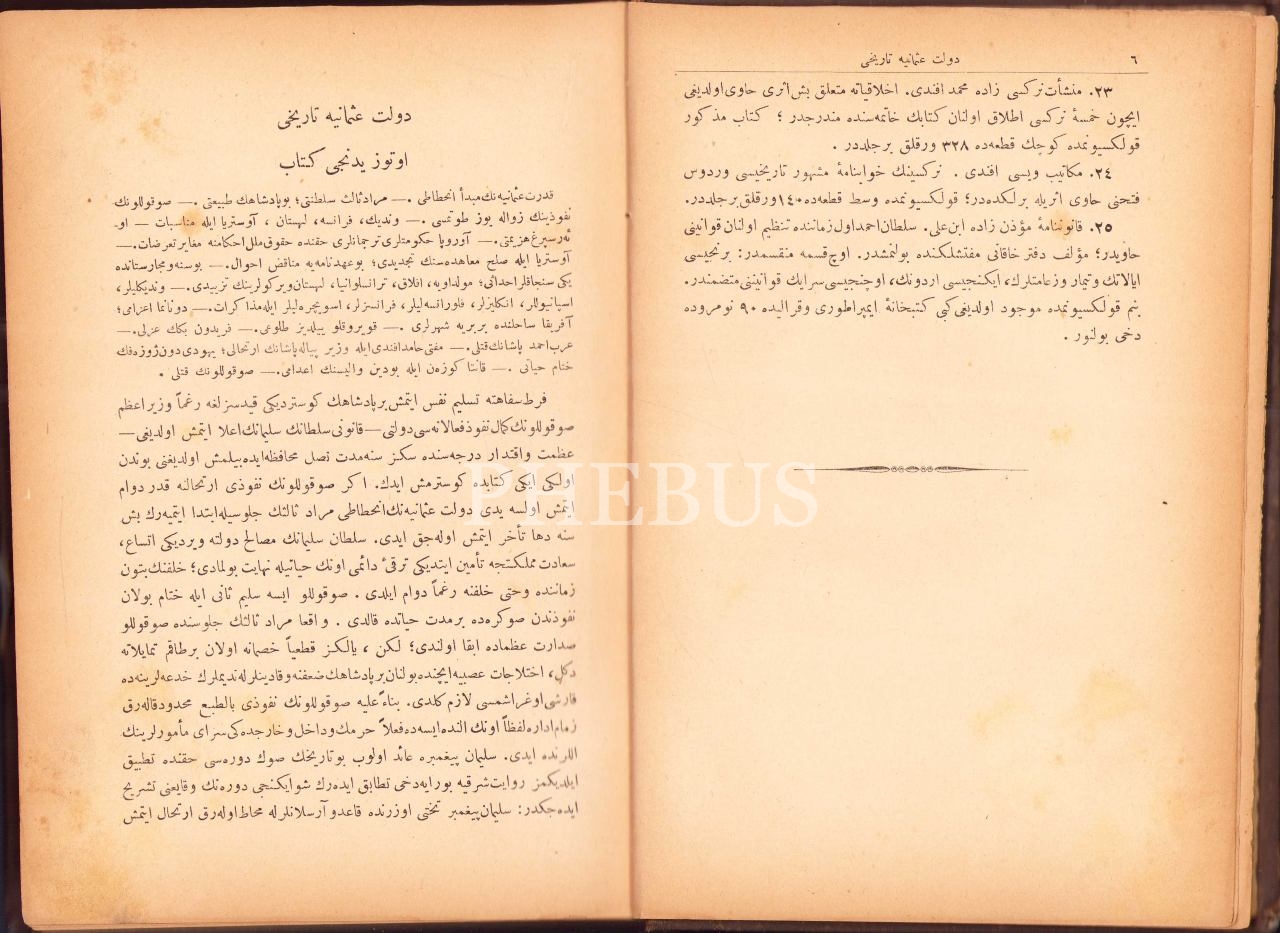 دولت عثمانيه تاريخى ٦
٢٣. منشأت نركسى زاده محمد افندى. اخلاقياته متعلق بش اثرى حاوى اولديغى
ايچون خمسۀ نركسى اطلاق اولنان كتابك خاتمه سنده مندرجدر ؛ كتاب مذكور
قولكسيونمده كوچك قطعه ده ٣٢٨ ورقلق برجلددر .
٢٤. مكاتيب ويسى افندى . نركسينك خوابنامۀ مشهور تاريخيسى وردوس
فتحنى حاوى اثريله برلكده در؛ قولكسيونمده وسط قطعه ده ١٤٠ ورقلق برجلددر.
٢٥. قانوننامۀ مؤذن زاده ابن على. سلطان احمد اول زماننده تنظيم اولنان قوانينى
حاويدر؛ مؤلف دفتر خاقانى مفتشلكنده بولنمشدر. اوچ قسمه منقسمدر: برنجيسى
ايالاتك وتيمار وزعامتلرك، ايكنجيسى اردونك، اوچنجيسى سرايك قوانيننى متضمندر.
بنم قولكسيونمده موجود اولديغى كبى كتبخانۀ ايمپراطورى وقراليده ٩٠ نومروده
دخى بولنور .
دولت عثمانيه تاريخى
اوتوز يدنجى كتاب
قدرت عثمانيه نك مبدأ انحطاطى .— مراد ثالث سلطنتى؛ بو پادشاهك طبيعتى .— صوقوللونك
نفوذينك زواله يوز طوتمسى .— ونديك، فرانسه، لهستان ، آوستريا ايله مناسبات — او-
ئه رسپرغ هزيمتى.— آوروپا حكومتلرى ترجمانلرى حقنده حقوق ملل احكامنه مغاير تعرضات.—
آوستريا ايله صلح معاهده سنك تجديدى؛ بوعهدنامه يه مناقض احوال.— بوسنه ومجارستانده
يكى سنجاقلر احداثى؛ مولداويه، افلاق، ترانسلوانيا، لهستان ويركولرينك تزييدى .— ونديكليلر،
اسپانيوللر، انكليزلر، فلورانسه ليلر، فرانسزلر، اسويچره ليلر ايله مذاكرات.— دونانما اعزامى؛
آفريقا ساحلنده بربريه شهرلرى .— قويروقلو ييلديز طلوعى.— فريدون بكك عزلى.—
عرب احمد پاشانك قتلى.— مفتى حامد افندى ايله وزير پياله پاشانك ارتحالى؛ يهودى دون ژوزه فك
ختام حياتى .— قانتا كوزه ن ايله بودين واليسنك اعدامى.— صوقوللونك قتلى .
فرط سفاهته تسليم نفس ايتمش برپادشاهك كوسترديكى قيدسزلغه رغماً وزير اعظم
صوقوللونك كمال نفوذ فعالانه سى دولتى — قانونى سلطانك سليمانك اعلا ايتمش اولديغى —
عظمت واقتدار درجه سنده سكز سنه مدت نصل محافظه ايده بيلمش اولديغنى بوندن
اولكى ايكى كتابده كوسترمش ايدك. اكر صوقوللونك نفوذى ارتحالنه قدر دوام
ايتمش اولسه يدى دولت عثمانيه نك انحطاطى مراد ثالثك جلوسيله ابتدا ايتميه رك بش
سنه دها تأخر ايتمش اوله جق ايدى. سلطان سليمانك مصالح دولته ويرديكى اتساع،
سعادت مملكتجه تأمين ايتديكى ترقئ دائمى اونك حياتيله نهايت بولمادى؛ خلفنك بتون
زماننده وحتى خلفنه رغماً دوام ايلدى . صوقوللو ايسه سليم ثانى ايله ختام بولان
نفوذندن صوكره ده برمدت حياتده قالدى . واقعا مراد ثالثك جلوسنده صوقوللو
صدارت عظماده ابقا اولندى؛ لكن ، يالكز قطعياً خصمانه اولان برطاقم تمايلاته
دكل، اختلاجات عصبيه ايچنده بولنان برپادشاهك ضعفنه وقادينلرله نديملرك خدعه لرينه ده
قارشى اوغراشمسى لازم كلدى. بناءً عليه صوقوللونك نفوذى بالطبع محدود قاله رق
زمام اداره لفظاً اونك النده ايسه ده فعلاً حرمك وداخل وخارجده كى سراى مأمورلرينك
اللرنده ايدى. سليمان پيغمبره عائد اولوب بوتاريخك صوك دوره سى حقنده تطبيق
ايلديكمز روايت شرقيه بورايه دخى تطابق ايده رك شو ايكنجى دوره نك وقايعنى تشريح
ايده جكدر: سليمان پيغمبر تختى اوزرنده قاعد وآرسلانلرله محاط اوله رق ارتحال ايتمش
PHEBUS